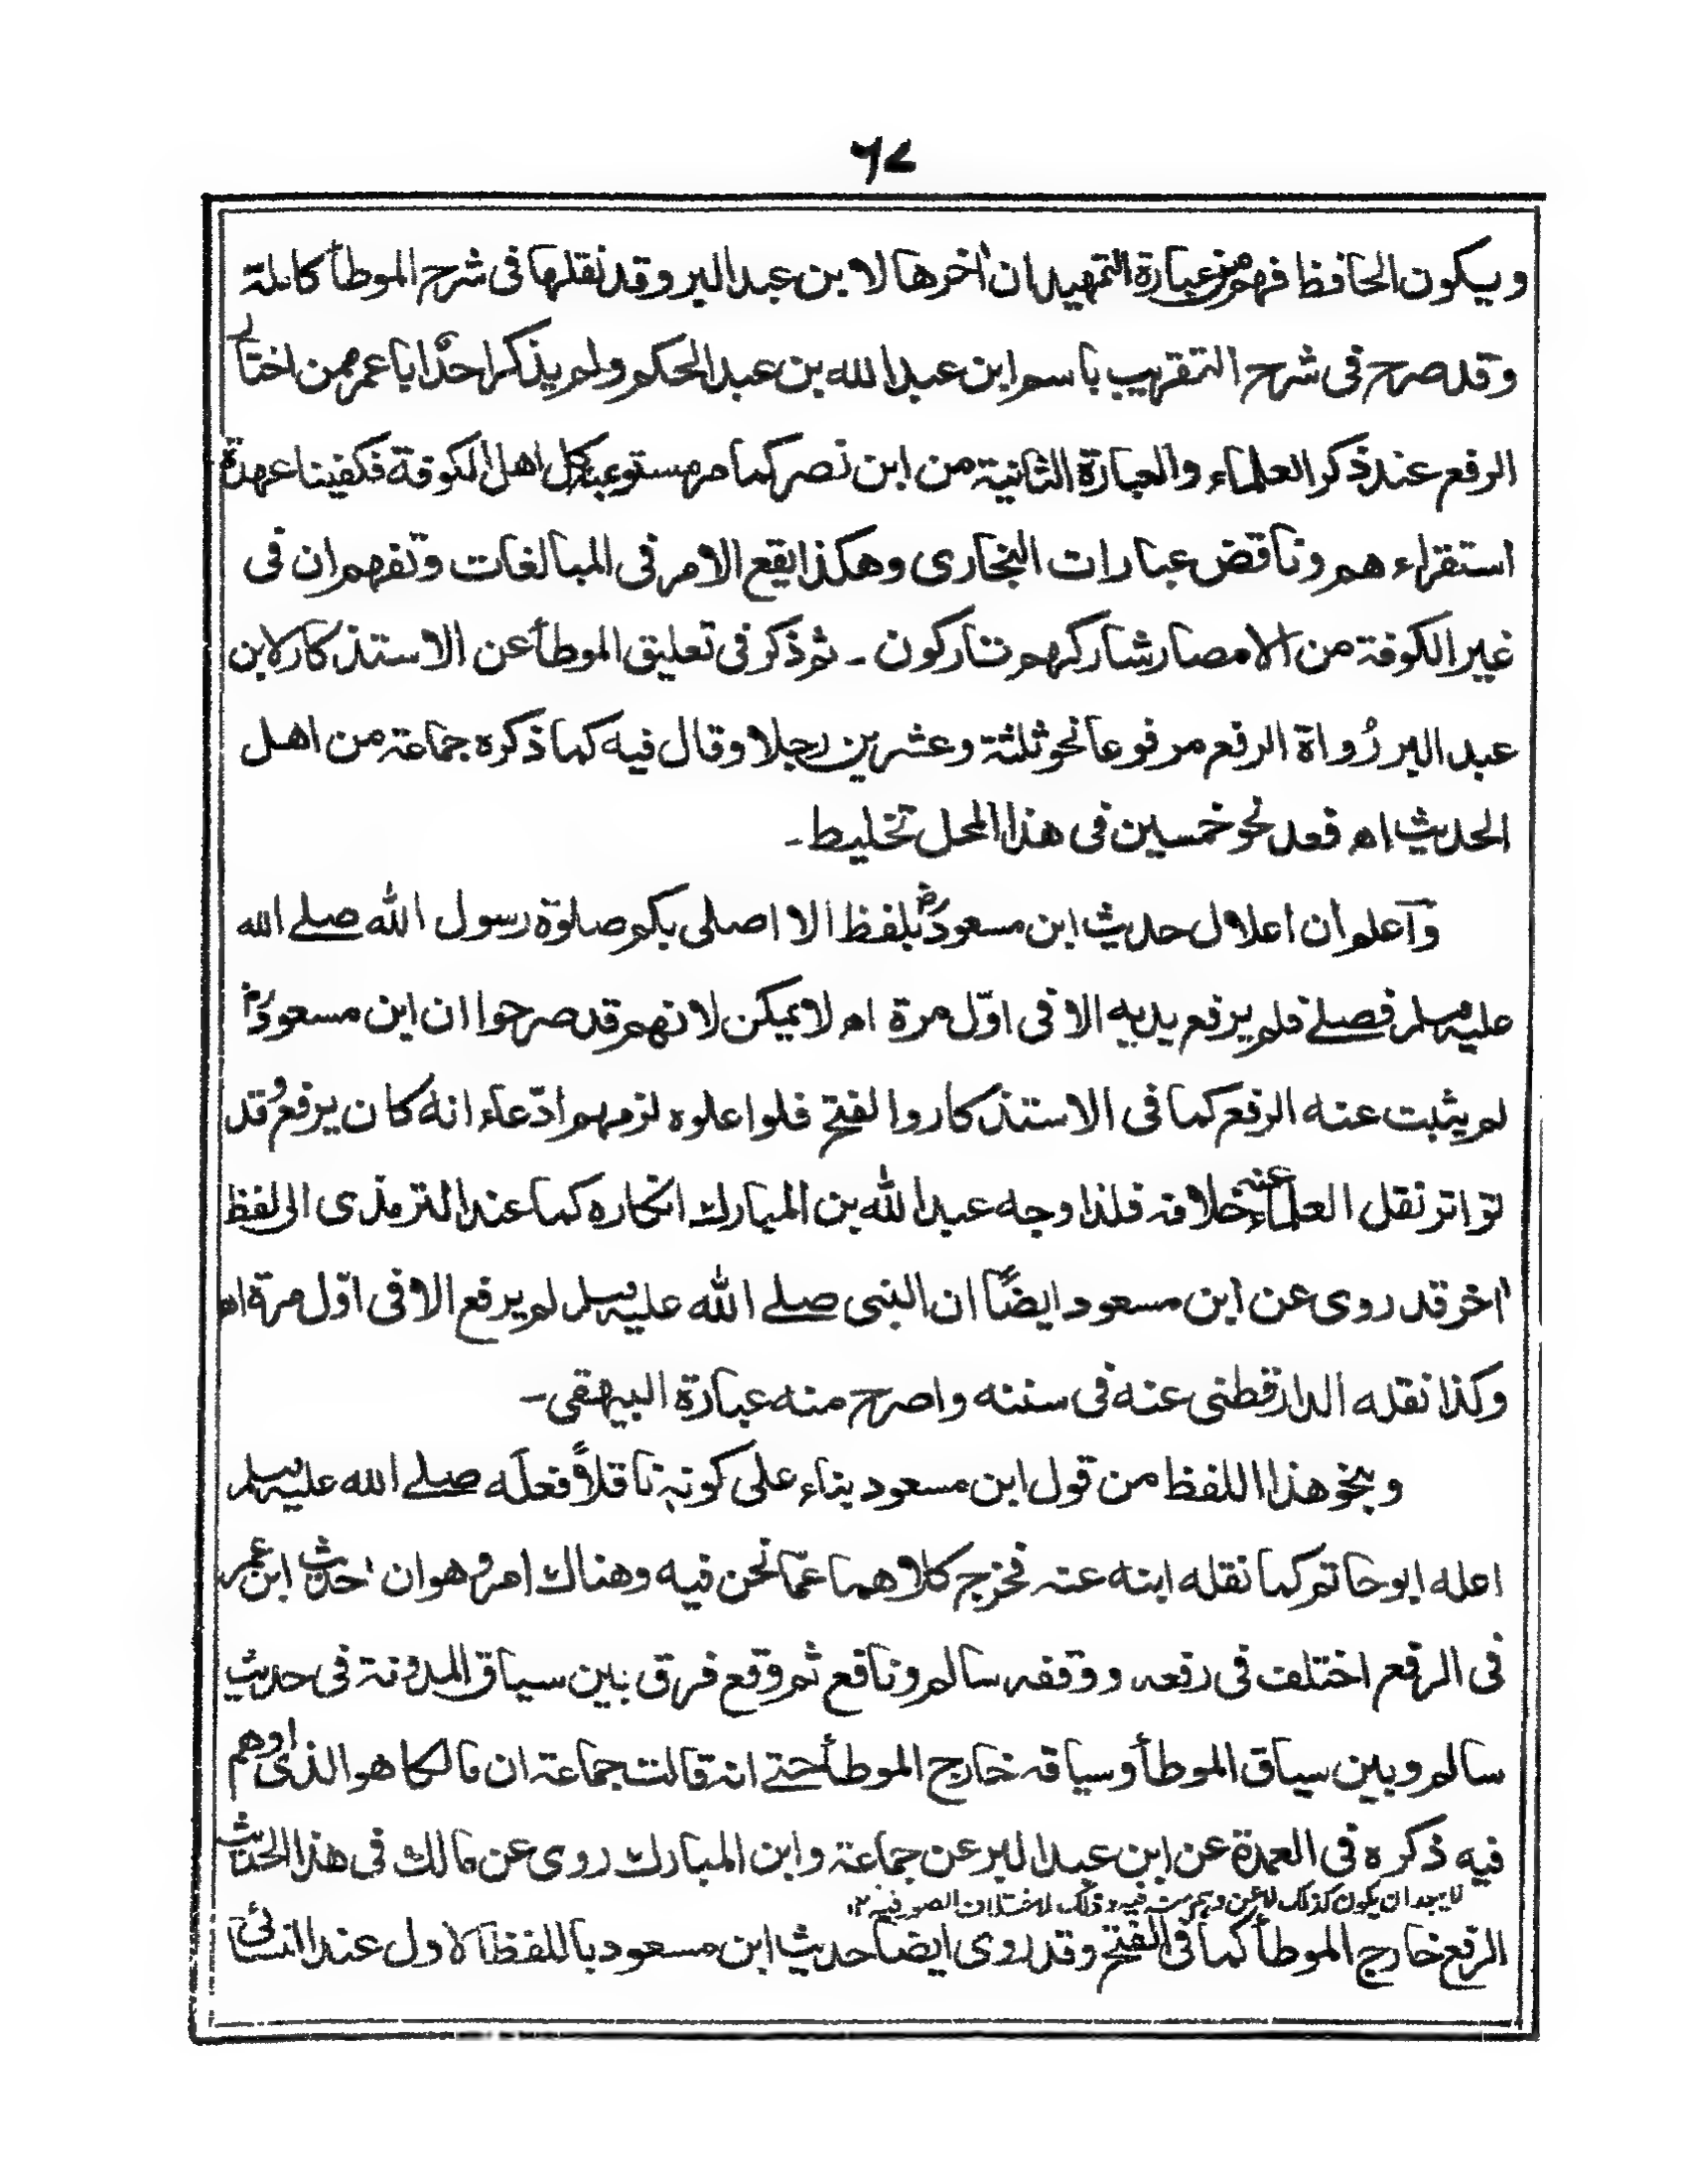 ٦٧
ويكون الحافظ فهم من عبارة التمهيد ان اٰخرها لابن عبد البر وقد نقلها فى شرح الموطأ كاملة
وقد صرح فى شرح التقريب باسم ابن عبد الله بن عبد الحكم ولم يذكر احدًا يا عمر ممن اختار
الرفع عند ذكر العلماء والعبارة الثانية من ابن نصر كما مر مستوعبا كل اهل الكوفة فكفينا عهدة
استقراء هم وناقض عبارات البخارى وهكذا يقع الامر فى المبالغات وتفهم ان فى
غير الكوفة من الامصار شاركهم تاركون ۔ ثم ذكر فى تعليق الموطأ عن الاستذكار لابن
عبد البر رُواة الرفع مرفوعا نحو ثلثة وعشرين رجلا وقال فيه كما ذكره جماعة من اهل
الحديث اھ فعد نحو خمسين فى هذا المحل تخليط ۔
وآعلم ان اعلال حديث ابن مسعودؓ بلفظ الا اصلى بكم صلوة رسول الله صلے الله
عليه وسلم فصلے فلم يرفع يديه الا فى اوّل مرة اھ لا يمكن لانهم قد صرحوا ان ابن مسعودؓ
لم يثبت عنه الرفع كما فى الاستذكار والفتح فلو اعلوه لزمهم ادّعاء انه كان يرفع وقد
تواتر نقل العلماء عنه خلافه فلذا وجه عبد الله بن المبارك انكاره كما عند الترمذى الى لفظ
اٰخر قد روى عن ابن مسعود ايضًا ان النبى صلے الله عليه وسلم لم يرفع الا فى اوّل مرة اھ
وكذا نقله الدارقطنى عنه فى سننه واصرح منه عبارة البيهقى ۔
وبنحو هذا اللفظ من قول ابن مسعود بناء على كونه ناقلاً فعله صلے الله عليه وسلم
اعله ابو حاتم كما نقله ابنه عنه فخرج كلاهما عمّا نحن فيه وهناك امر وهو ان حديث ابن عمر
فى الرفع اختلف فى رفعه ووقفه سالم ونافع ثم وقع فرق بين سياق المدونة فى حديث
سالم وبين سياق الموطأ وسياقه خارج الموطأ حتے انه قالت جماعة ان مالكا هو الذى اوهم
فيه ذكره فى العمدة عن ابن عبد البر عن جماعة وابن المبارك روى عن مالك فى هذا الحديث
لا يبعد ان يكون كذلك وذلك لاختلاف الصور فيه ۱۲
الرفع خارج الموطأ كما فى الفتح وقد روى ايضا حديث ابن مسعود باللفظ الاول عند النسائى